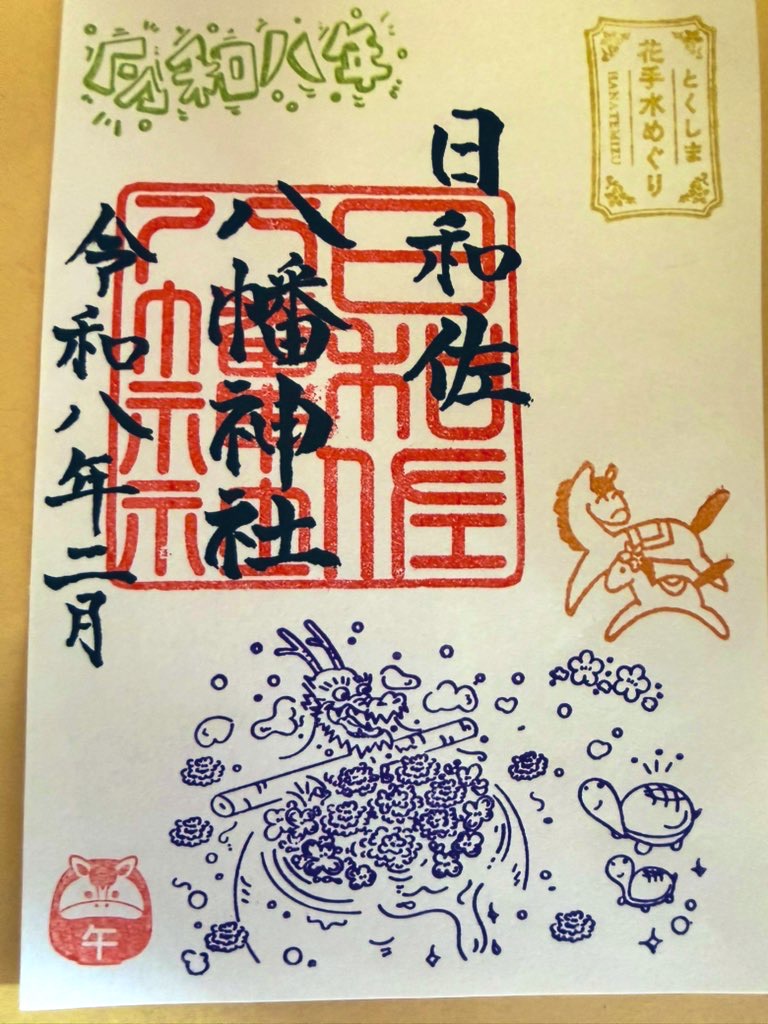 令和八年
とくしま
花手水めぐり
HANATEMIZU
日和佐
八幡神社
令和八年二月
午